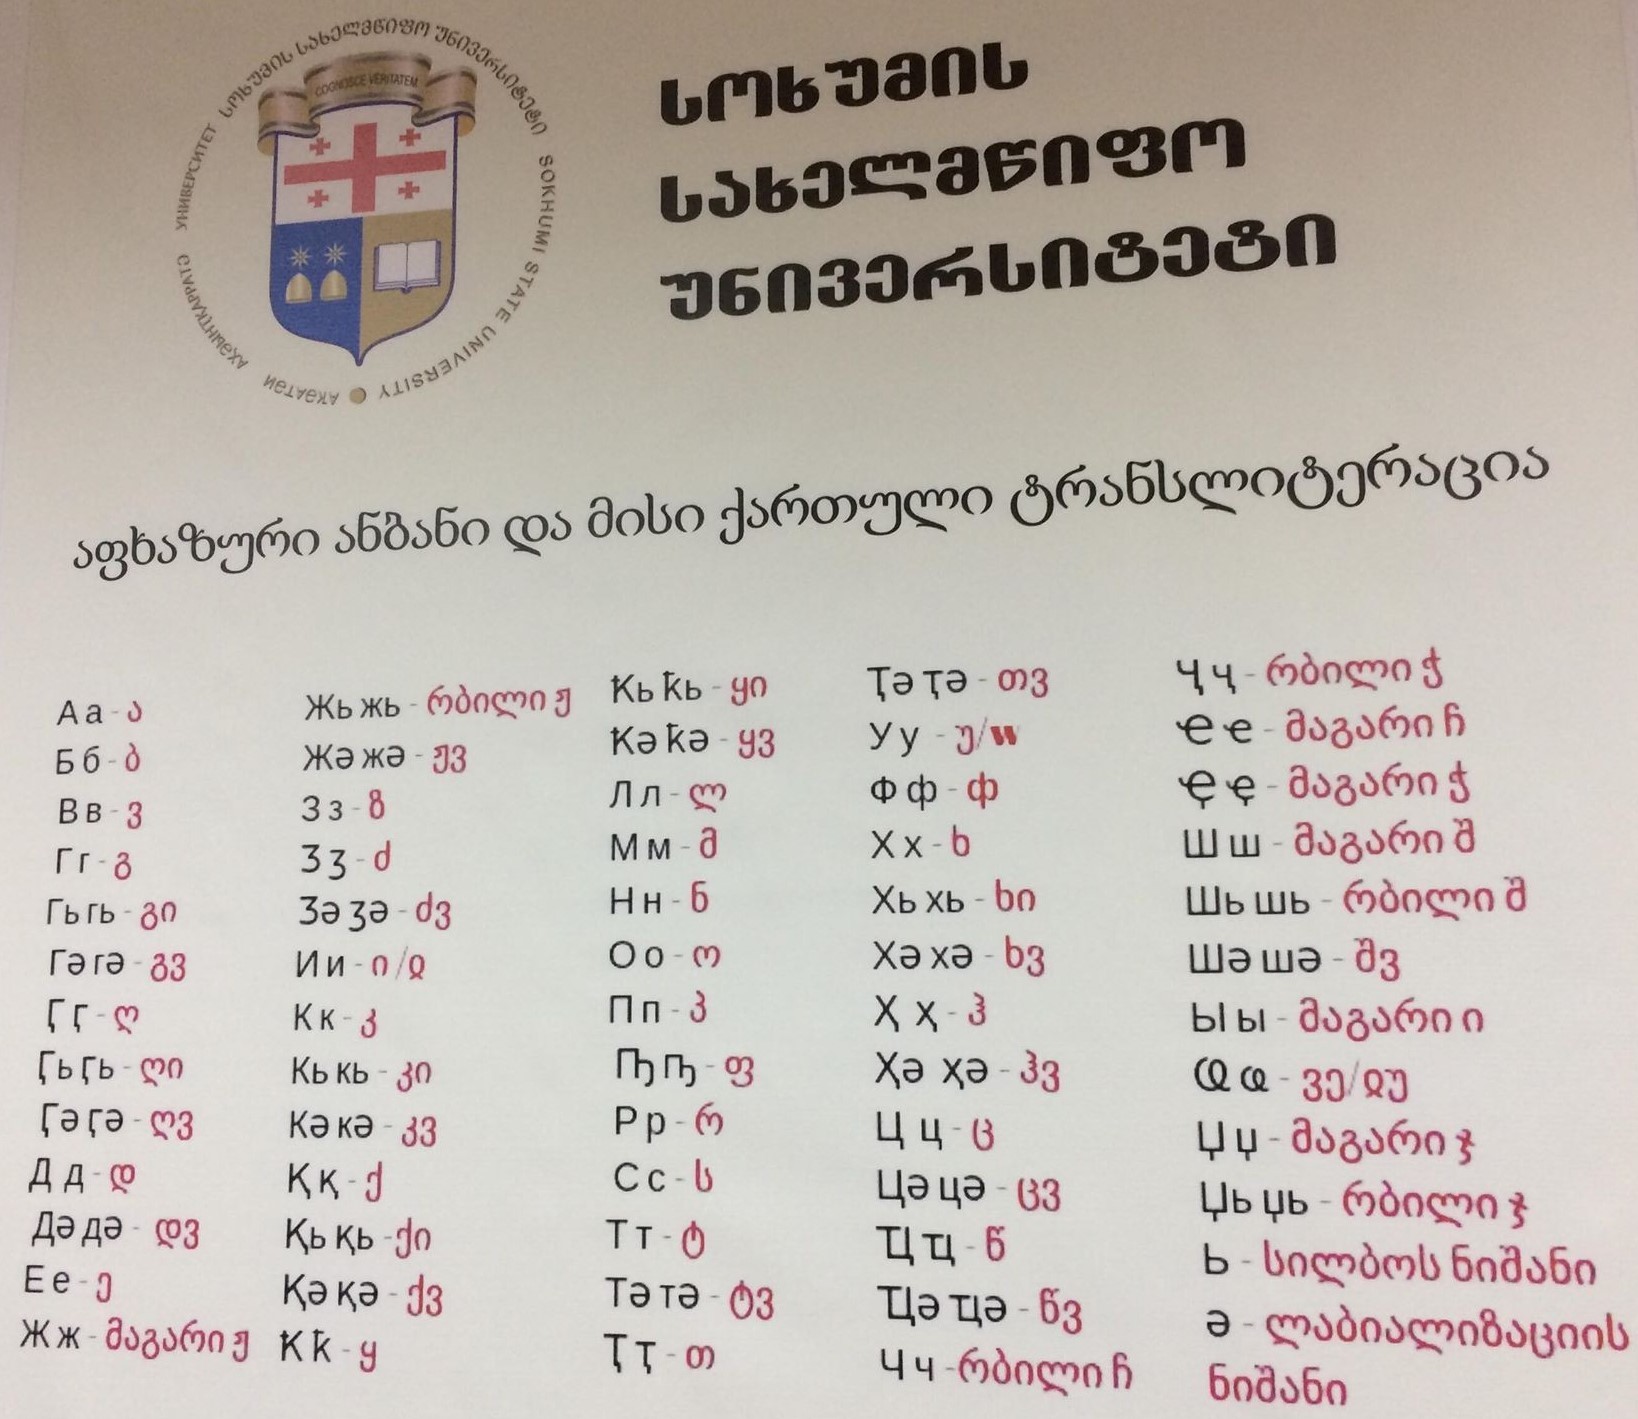 სოხუმის სახელმწიფო უნივერსიტეტი
SOKHUMI STATE UNIVERSITY
УНИВЕРСИТЕТ
COGNOSCE VERITATEM
სოხუმის
სახელმწიფო
უნივერსიტეტი
აფხაზური ანბანი და მისი ქართული ტრანსლიტერაცია
А а - ა
Б б - ბ
В в - ვ
Г г - გ
Гь гь - გი
Гә гә - გვ
Ӷ ӷ - ღ
Ӷь ӷь - ღი
Ӷә ӷә - ღვ
Д д - დ
Дә дә - დვ
Е е - ე
Ж ж - მაგარი ჟ
Жь жь - რბილი ჟ
Жә жә - ჟვ
З з - ზ
Ӡ ӡ - ძ
Ӡә ӡә - ძვ
И и - ი/ჲ
К к - კ
Кь кь - კი
Кә кә - კვ
Қ қ - ქ
Қь қь - ქი
Қә қә - ქვ
Ҟ ҟ - ყ
Ҟь ҟь - ყი
Ҟә ҟә - ყვ
Л л - ლ
М м - მ
Н н - ნ
О о - ო
П п - პ
Ҧ ҧ - ფ
Р р - რ
С с - ს
Т т - ტ
Тә тә - ტვ
Ҭ ҭ - თ
Ҭә ҭә - თვ
У у - უ/w
Ф ф - ф
Х х - ხ
Хь хь - ხი
Хә хә - ხვ
Ҳ ҳ - ჰ
Ҳә ҳә - ჰვ
Ц ц - ც
Цә цә - ცვ
Ҵ ҵ - წ
Ҵә ҵә - წვ
Ч ч - რბილი ჩ
Ҷ ҷ - რბილი ჭ
Ҽ ҽ - მაგარი ჩ
Ҿ ҿ - მაგარი ჭ
Ш ш - მაგარი შ
Шь шь - რბილი შ
Шә шә - შვ
Ы ы - მაგარი ი
Ҩ ҩ - ვე/ჲუ
Џ џ - მაგარი ჯ
Џь џь - რბილი ჯ
Ь - სილბოს ნიშანი
ә - ლაბიალიზაციის
ნიშანი